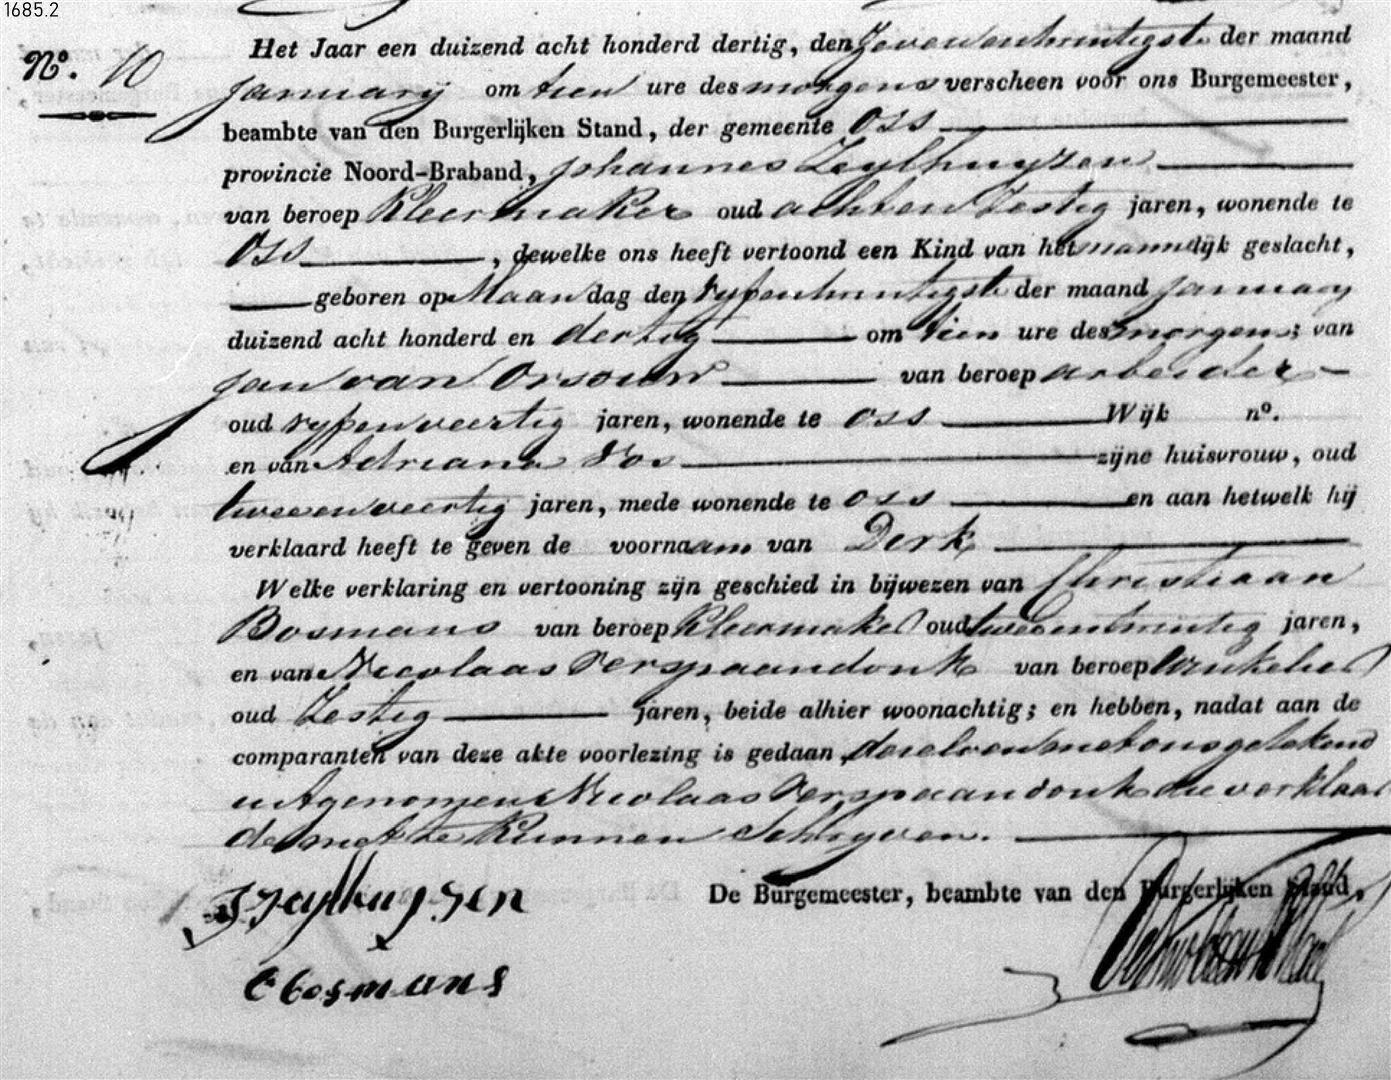 1685.2
Het Jaar een duizend acht honderd dertig, den Zevenentwintigste der maand
N°. 10
January om tien ure des morgens verscheen voor ons Burgemeester,
beambte van den Burgerlijken Stand, der gemeente Oss
provincie Noord-Braband, Johannes Zeylhuyzen
van beroep Kleermaker oud achtenZestig jaren, wonende te
Oss, dewelke ons heeft vertoond een Kind van het mannelijk geslacht,
geboren op Maandag den vyfentwintigste der maand January
duizend acht honderd en dertig om tien ure des morgens; van
Jan van Orsouw van beroep arbeider
oud vyfenveertig jaren, wonende te Oss Wijk n°.
en van Adriana Vos zijne huisvrouw, oud
tweeenveertig jaren, mede wonende te Oss en aan hetwelk hij
verklaard heeft te geven de voornaam van Derk
Welke verklaring en vertooning zijn geschied in bijwezen van Christiaan
Bosmans van beroep Kleermaker oud tweeentwintig jaren,
en van Nicolaas Verspaandonk van beroep winkelier
oud Zestig jaren, beide alhier woonachtig; en hebben, nadat aan de
comparanten van deze akte voorlezing is gedaan, dezelven met ons getekend
uitgenomen Nicolaas Verspaandonk die verklaar
de niet te Kunnen Schryven.
De Burgemeester, beambte van den Burgerlijken Stand,
J Zeylhuyzen
C Bosmans